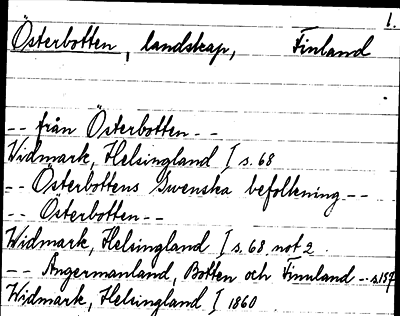 1.
Österbotten, landskap, Finland
-- från Österbotten --
Widmark, Helsingland I s. 68
-- Österbottens Swenska befolkning --
-- Österbotten --
Widmark, Helsingland I s. 68 not 2.
-- Ångermanland, Botten och Finnland -- s. 157
Widmark, Helsingland I 1860